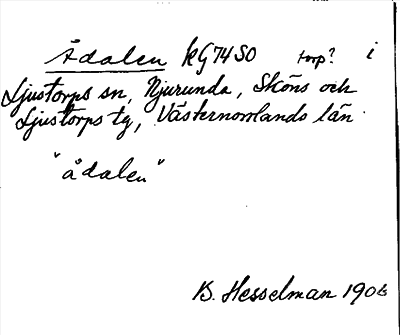 Ådalen kG74SO torp? i
Ljustorps sn, Njurunda, Sköns och
Ljustorps tg, Västernorrlands län
"ådalen"
B. Hesselman 1906